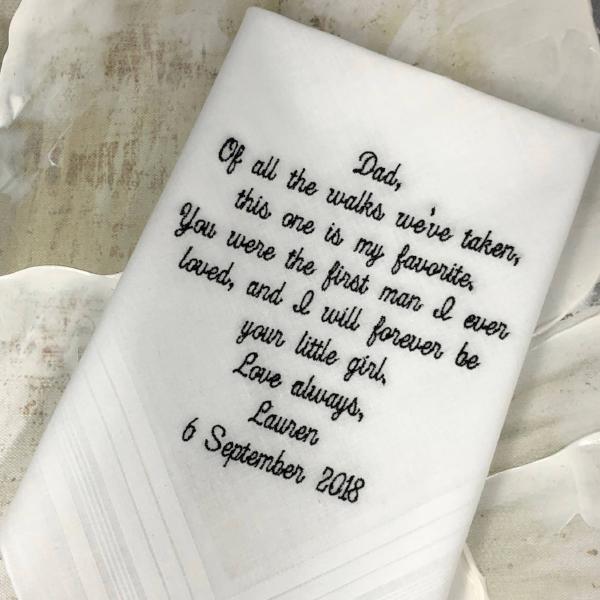 Dad,
Of all the walks we've taken,
this one is my favorite.
You were the first man I ever
loved, and I will forever be
your little girl.
Love always,
Lauren
6 September 2018